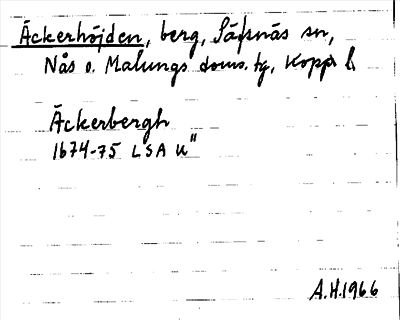 Äckerhöjden, berg, Säfsnäs sn,
Nås o. Malungs doms. tg, Kopp. l.
Äckerbergh
1674-75 LSA U"
A.H.1966